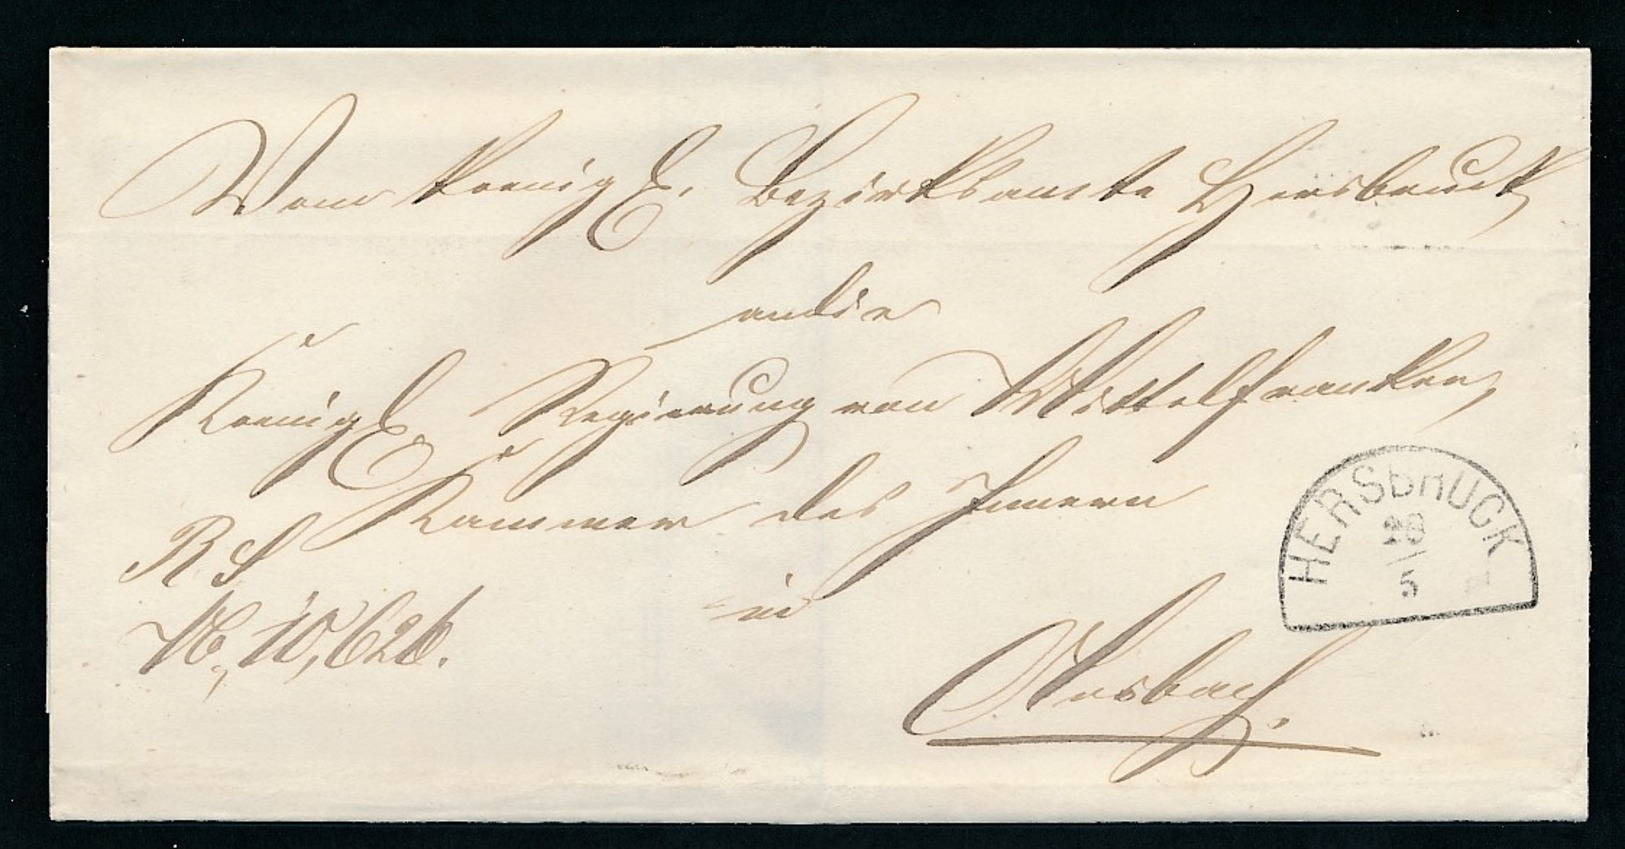 Vom koenigl. Bezirksamte Hersbruck
an die
Koenigl Regierung von Mittelfranken,
Kammer des Innern
R S
in
Nº, 10,626.
Ansbach.
HERSBRUCK
28
5